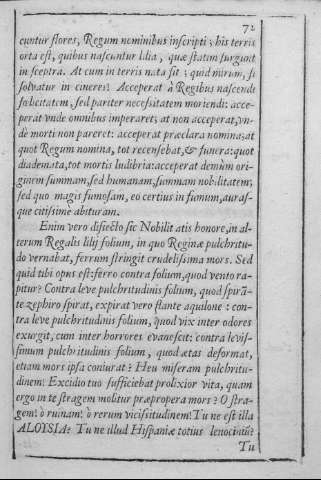 72
cuntur flores, Regum nominibus inscripti; his terris
orta est, quibus nascuntur lilia, quæ statim surgunt
in sceptra. At cum in terris nata sit; quid mirum, si
soluatur in cineres? Acceperat à Regibus nascendi
felicitatem, sed pariter necessitatem moriendi: acce-
perat vnde omnibus imperaret; at non acceperat, vn-
de morti non pareret: acceperat præclara nomina; at
quot Regum nomina, tot recensebat, & funera: quot
diademata, tot mortis ludibria: acceperat demùm ori-
ginem summam, sed humanam, summam nobilitatem;
sed quo magis fumosam, eo certius in fumum, auras-
que citissimè abituram.
Enim vero disiecto sic Nobilitatis honore, in al-
terum Regalis lilij folium, in quo Reginæ pulchritu-
do vernabat, ferrum stringit crudelissima mors. Sed
quid tibi opus est: ferro contra folium, quod vento ra-
pitur? Contra leue pulchritudinis folium, quod spirã-
te zephiro spirat, expirat vero flante aquilone: con-
tra leue pulchritudinis folium, quod vix inter odores
exurgit, cum inter horrores euanescit: contra leuis-
simum pulchritudinis folium, quod ætas deformat,
etiam mors ipsa coniurat? Heu miseram pulchritu-
dinem! Excidio tuo sufficiebat prolixior vita, quam
ergo in te stragem molitur præpropera mors? O stra-
gem! ò ruinam! ò rerum vicissitudinem! Tu ne est illa
ALOYSIA? Tu ne illud Hispaniæ totius lenocinium?
Tu